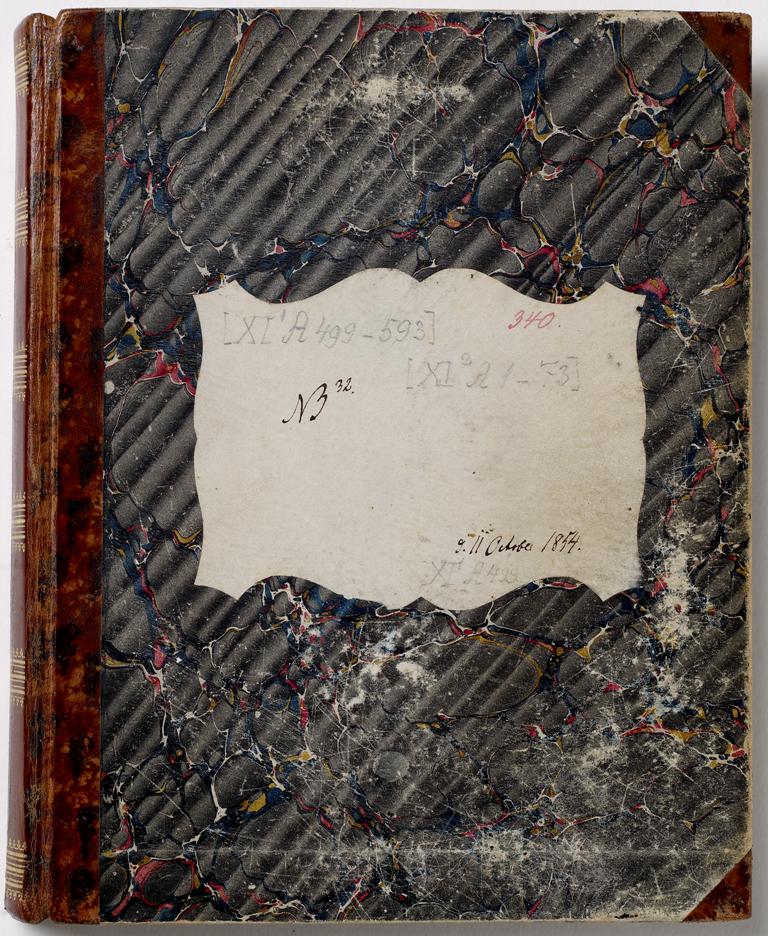 [XI¹ A 499–593]
340.
[XI² A 1–73]
NB³².
d. 11 October 1854.
XI¹ A 499